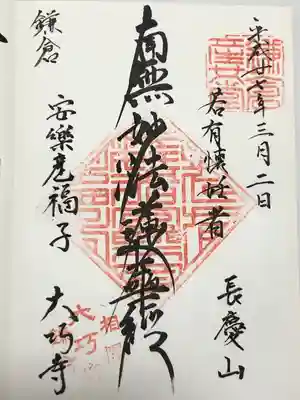 平成廿七年三月二日
若有懐妊者
長慶山
南無妙法蓮華經
鎌倉
安樂産福子
大巧寺